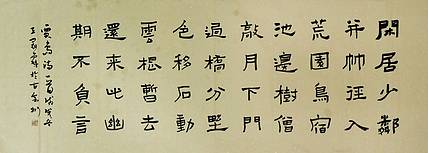 閑居少鄰
并艸徑入
荒園鳥宿
池邊樹僧
敲月下門
過橋分野
色移石動
雲根暫去
還來此幽
期不負言
賈島詩一首